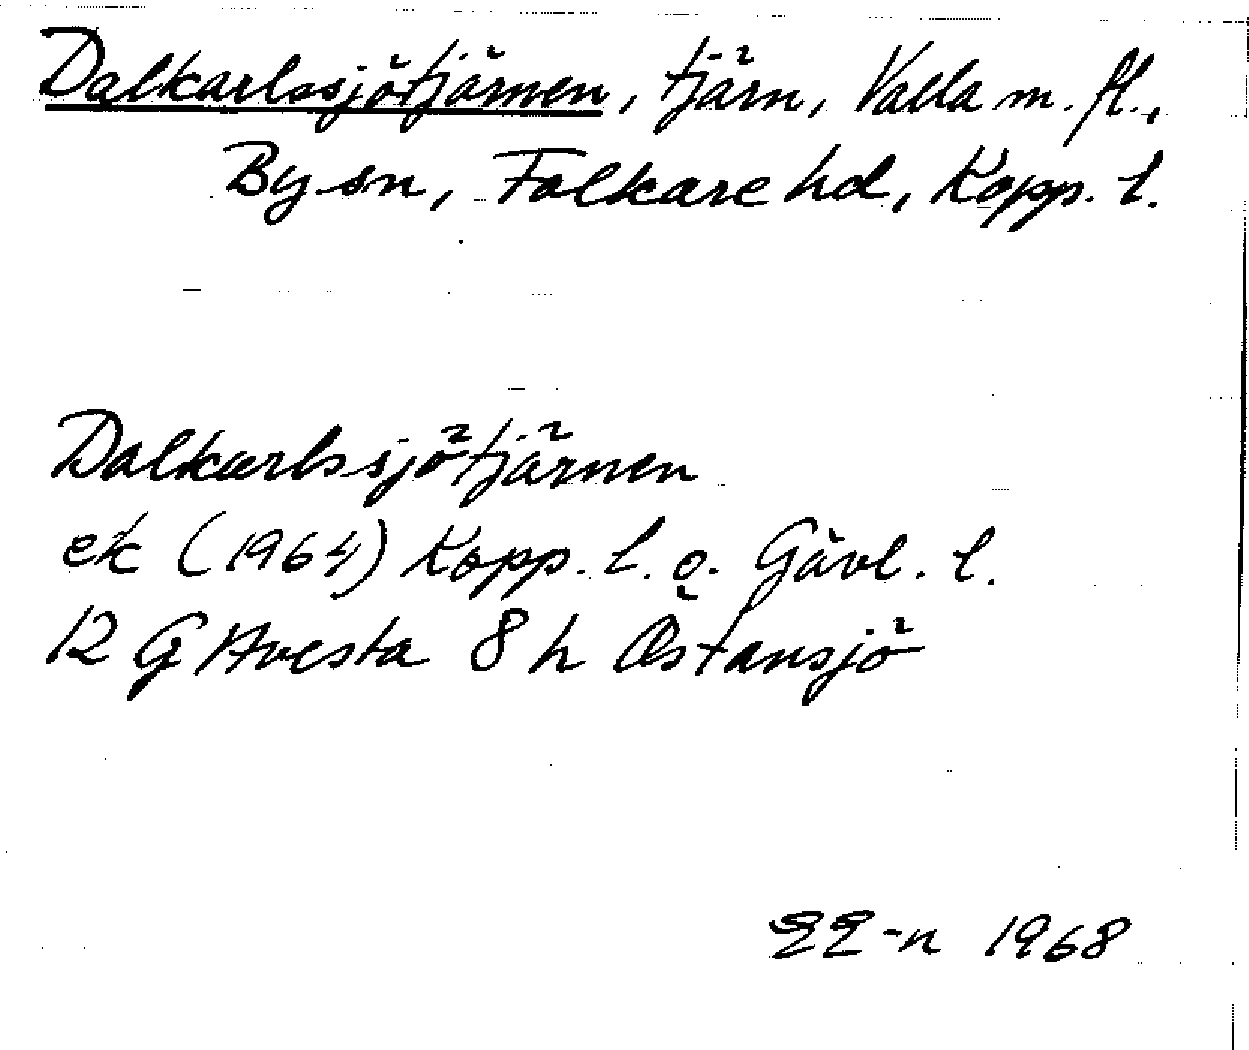 Dalkarlssjötjärnen, tjärn, Valla m. fl.,
By sn, Folkare hd, Kopp. l.
Dalkarlssjötjärnen
ek (1964) Kopp. l. o. Gävl. l.
12 G Avesta 8 h Östansjö
EE-n 1968